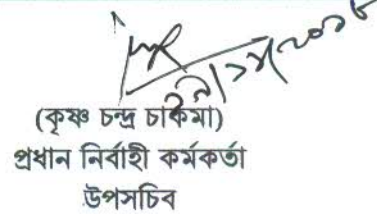 (কৃষ্ণ চন্দ্র চাকমা)
প্রধান নির্বাহী কর্মকর্তা
উপসচিব